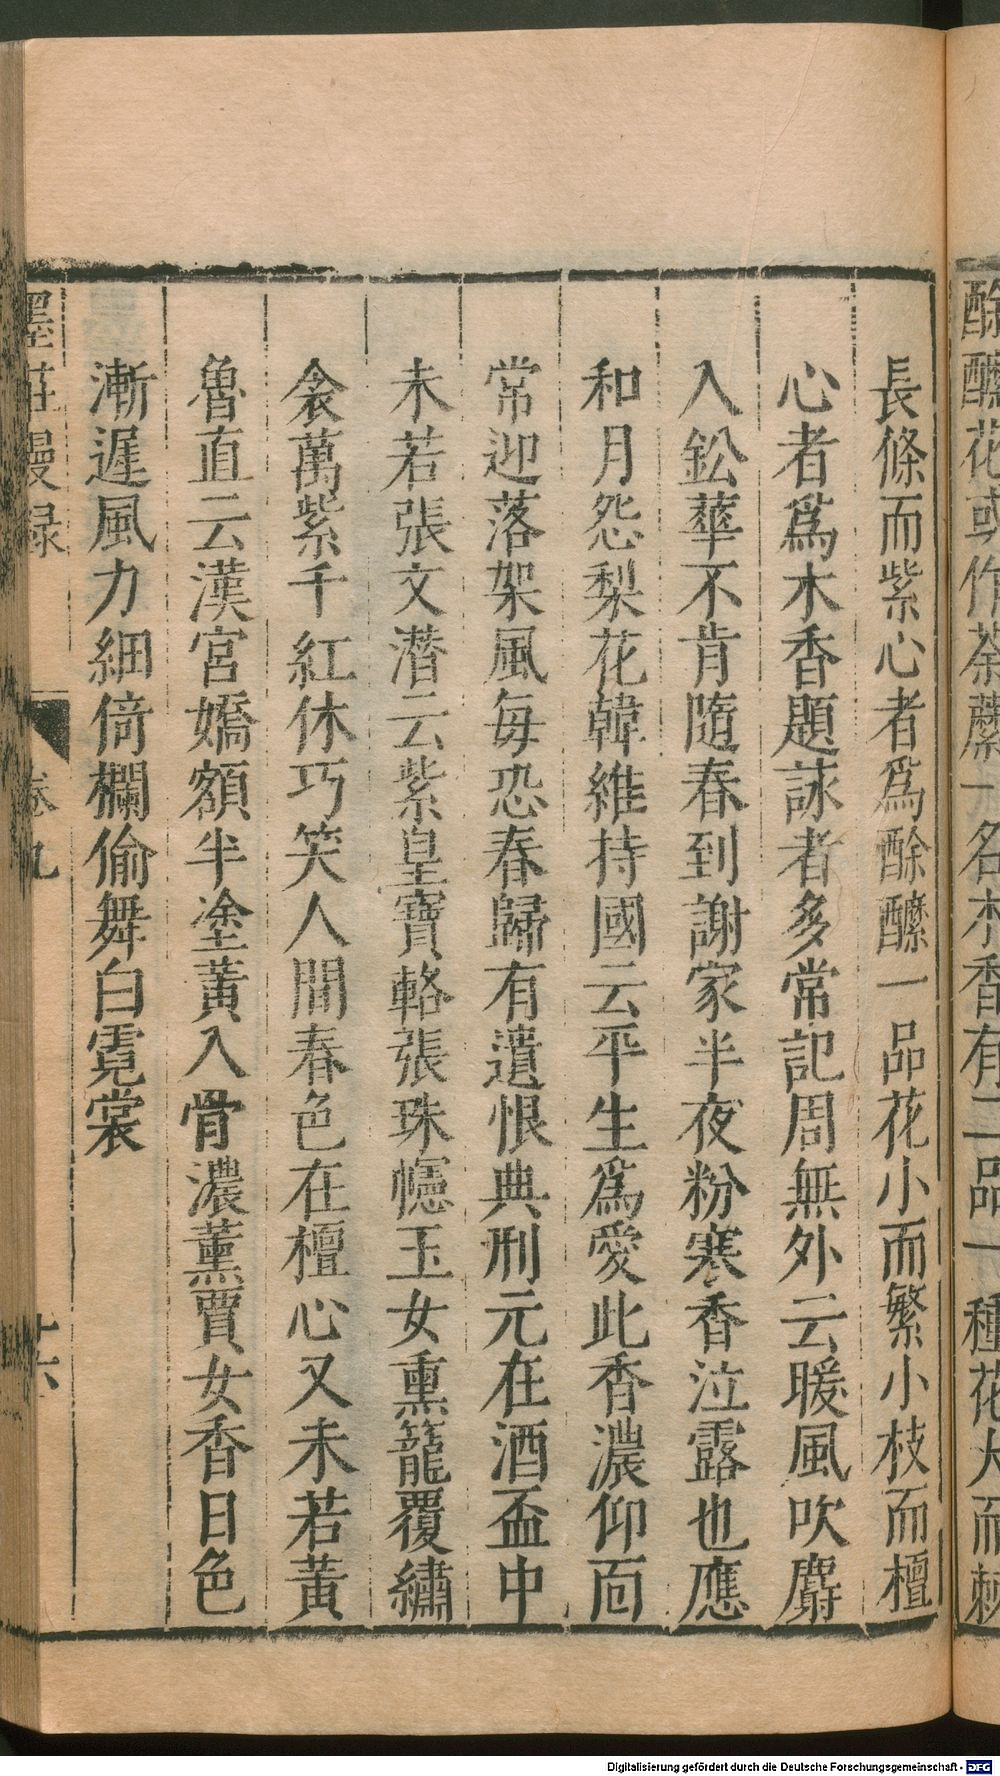 酴醾花或作荼蘼一名木香有二品一種花大而棘
長條而紫心者爲酴醾一品花小而繁小枝而檀
心者爲木香題詠者多常記周無外云暖風吹麝
入鈆華不肯隨春到謝家半夜粉寒香泣露也應
和月怨梨花韓維持國云平生爲愛此香濃仰面
常迎落架風毎恐春歸有遺恨典刑元在酒盃中
未若張文潛云紫皇寶輅張珠幰玉女熏籠覆繡
衾萬紫千紅休巧笑人間春色在檀心又未若黃
魯直云漢宮嬌額半塗黃入骨濃薰賈女香日色
漸遲風力細倚欄偷舞白霓裳
墨莊漫录
卷九
十六
Digitalisierung gefördert durch die Deutsche Forschungsgemeinschaft - DFG